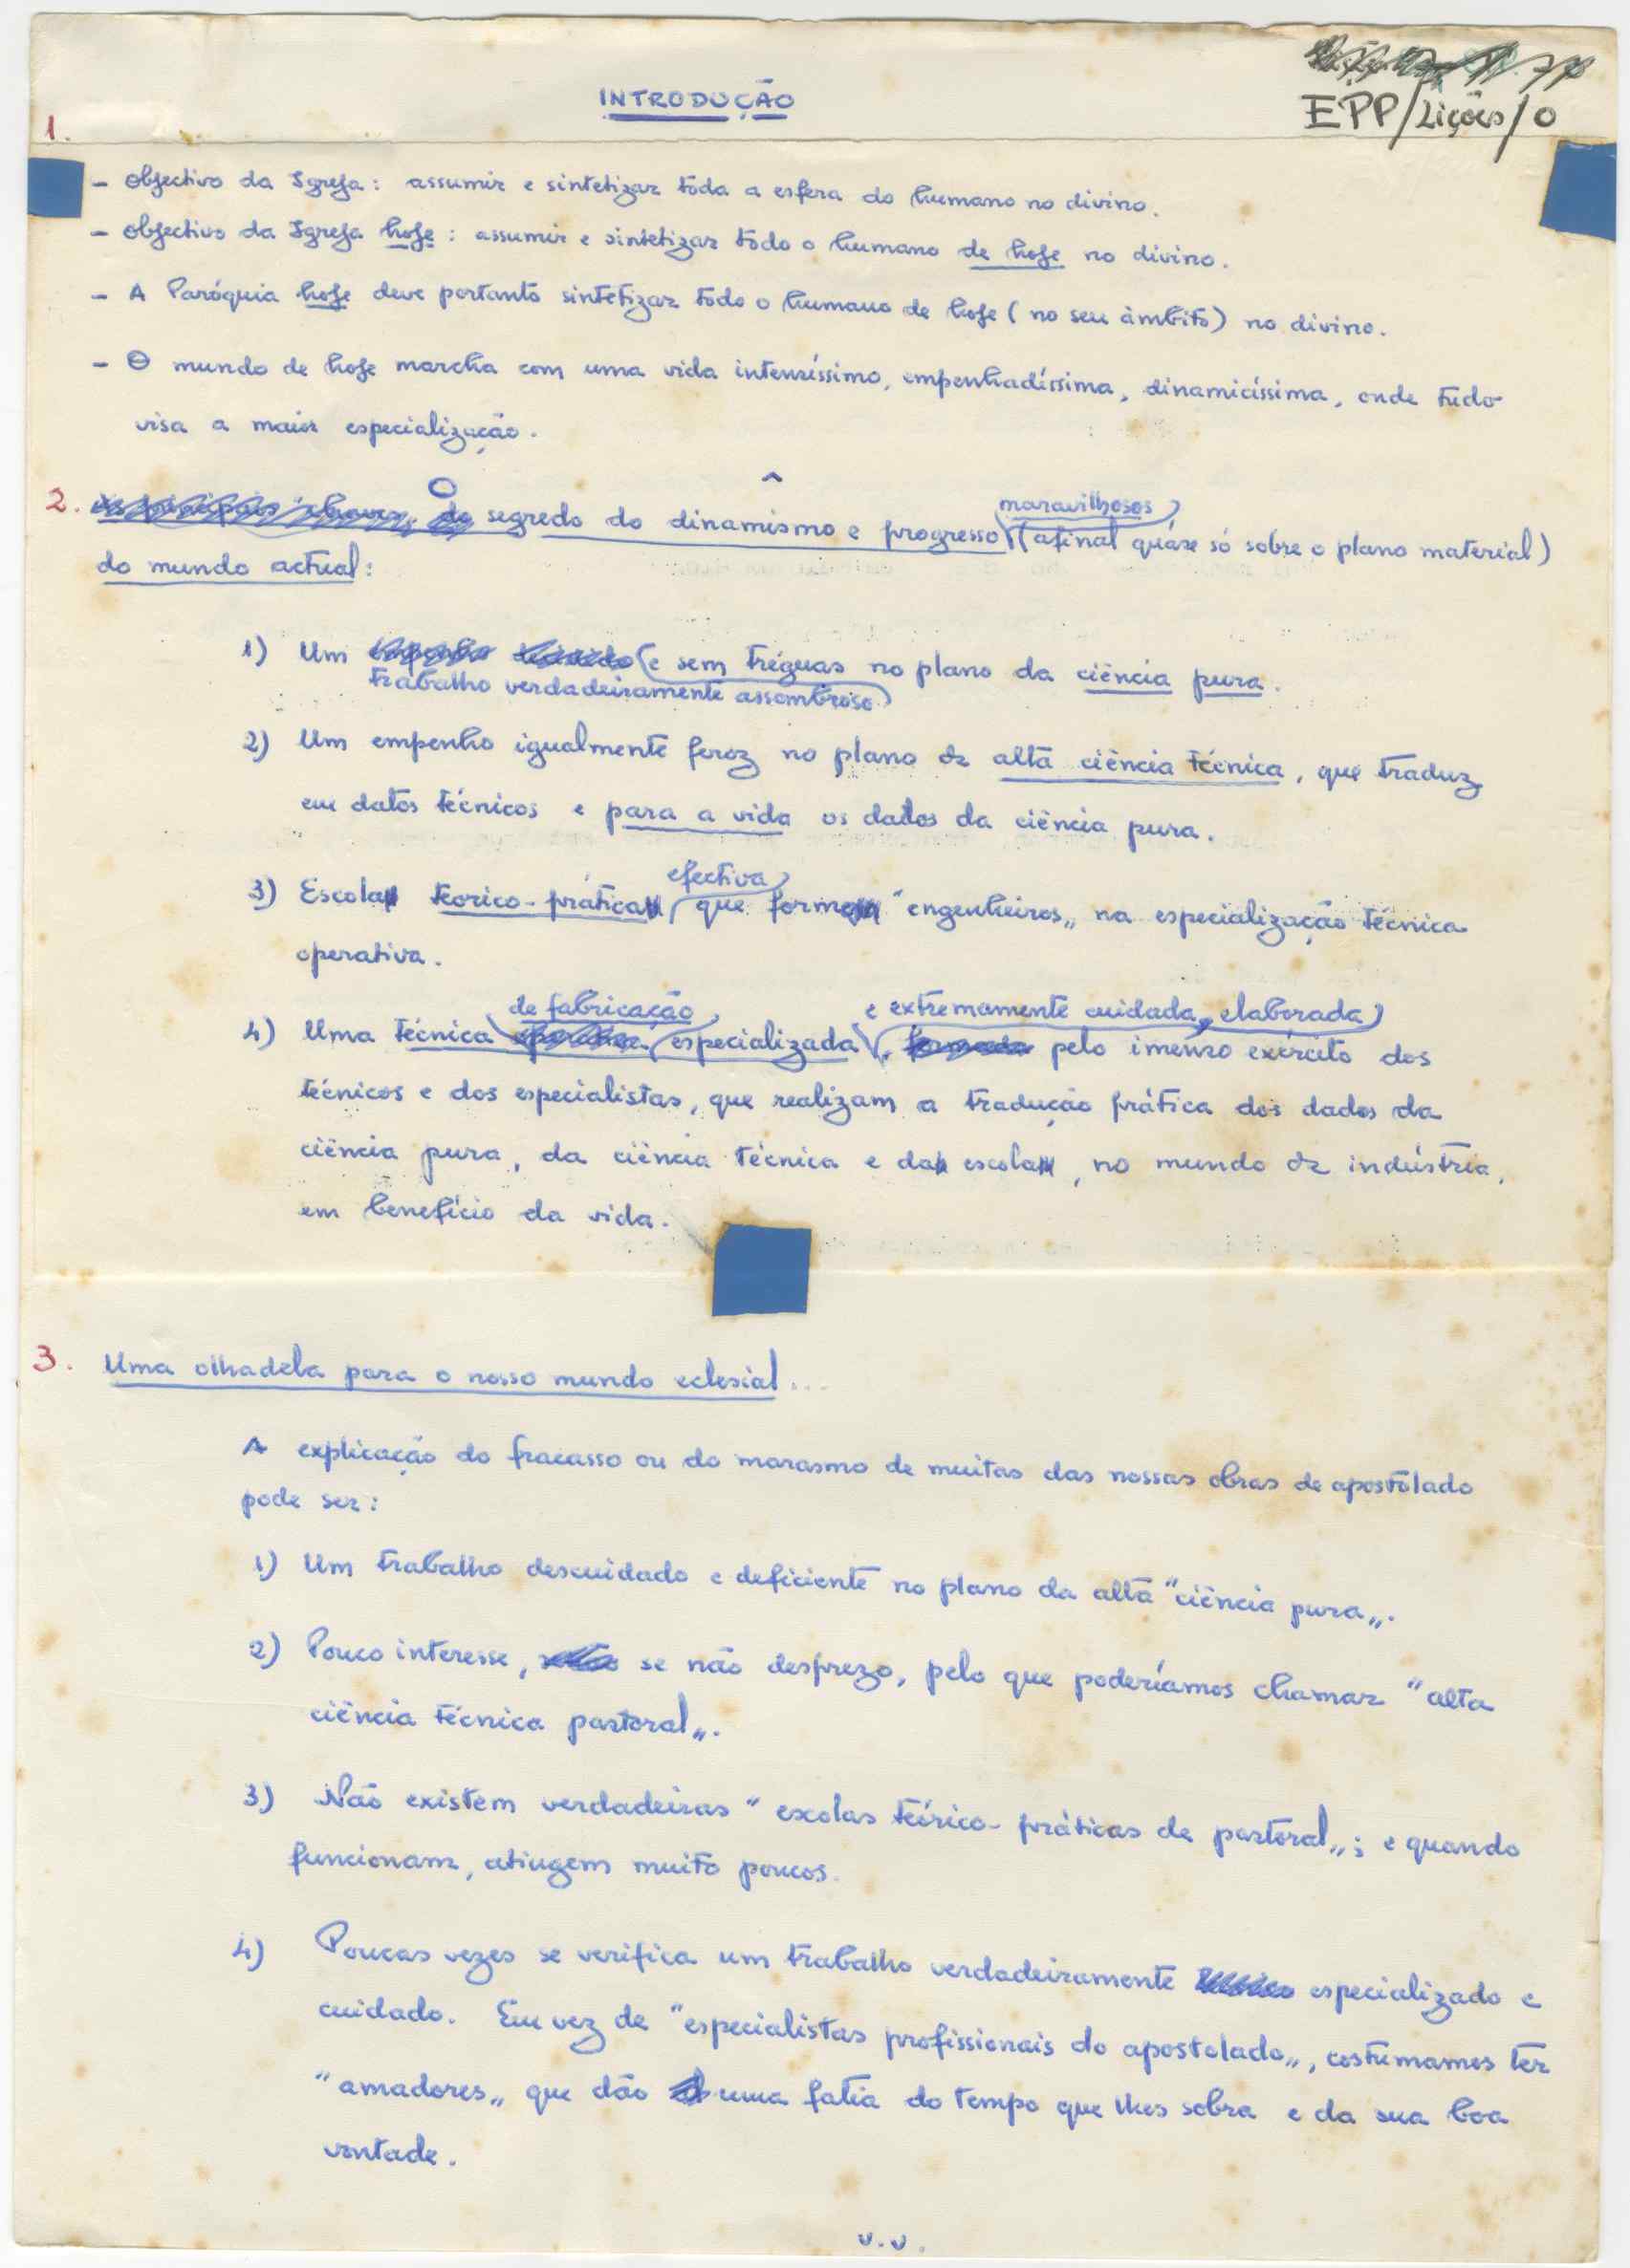 EPP/Lições/0
INTRODUÇÃO
1.
- Objectivo da Igreja: assumir e sintetizar toda a esfera do humano no divino.
- Objectivo da Igreja hoje: assumir e sintetizar todo o humano de hoje no divino.
- A Paróquia hoje deve portanto sintetizar todo o humano de hoje (no seu âmbito) no divino.
- O mundo de hoje marcha com uma vida intensíssima, empenhadíssima, dinamicíssima, onde tudo
visa a maior especialização.
2. O segredo do dinamismo e progresso maravilhosos (afinal quáse só sôbre o plano material)
do mundo actual:
1) Um trabalho verdadeiramente assombroso e sem tréguas no plano da ciência pura.
2) Um empenho igualmente feroz no plano da alta ciência técnica, que traduz
em datos técnicos e para a vida os dados da ciência pura.
3) Escola teorico-prática efectiva que forme "engenheiros„ na especialização técnica
operativa.
4) Uma técnica de fabricação especializada e extremamente cuidada, elaborada pelo imenso exército dos
técnicos e dos especialistas, que realizam a tradução prática dos dados da
ciência pura, da ciência técnica e da escola, no mundo da indústria,
em benefício da vida.
3. Uma olhadela para o nosso mundo eclesial...
A explicação do fracasso ou do marasmo de muitas das nossas obras de apostolado
pode ser:
1) Um trabalho descuidado e deficiente no plano da alta "ciência pura„.
2) Pouco interesse, se não desprezo, pelo que poderíamos chamar "alta
ciência técnica pastoral„.
3) Não existem verdadeiras "escolas teórico-práticas de pastoral„; e quando
funcionam, atingem muito poucos.
4) Poucas vezes se verifica um trabalho verdadeiramente especializado e
cuidado. Em vez de "especialistas profissionais do apostolado„, costumamos ter
"amadores„ que dão uma fatia do tempo que lhes sobra e da sua boa
vontade.
v.v.